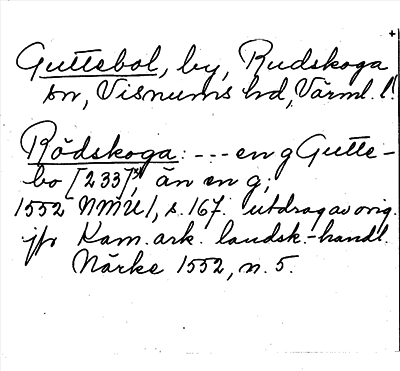 Guttebol, by, Rudskoga
sn, Visnums hd, Värml. l.
Rödskoga: --- en g Gutte-
bo [233], än en g,
1552 NMU 1, s. 167. utdrag av orig.
jfr Kam. ark. landsk.-handl.
Närke 1552, n. 5.